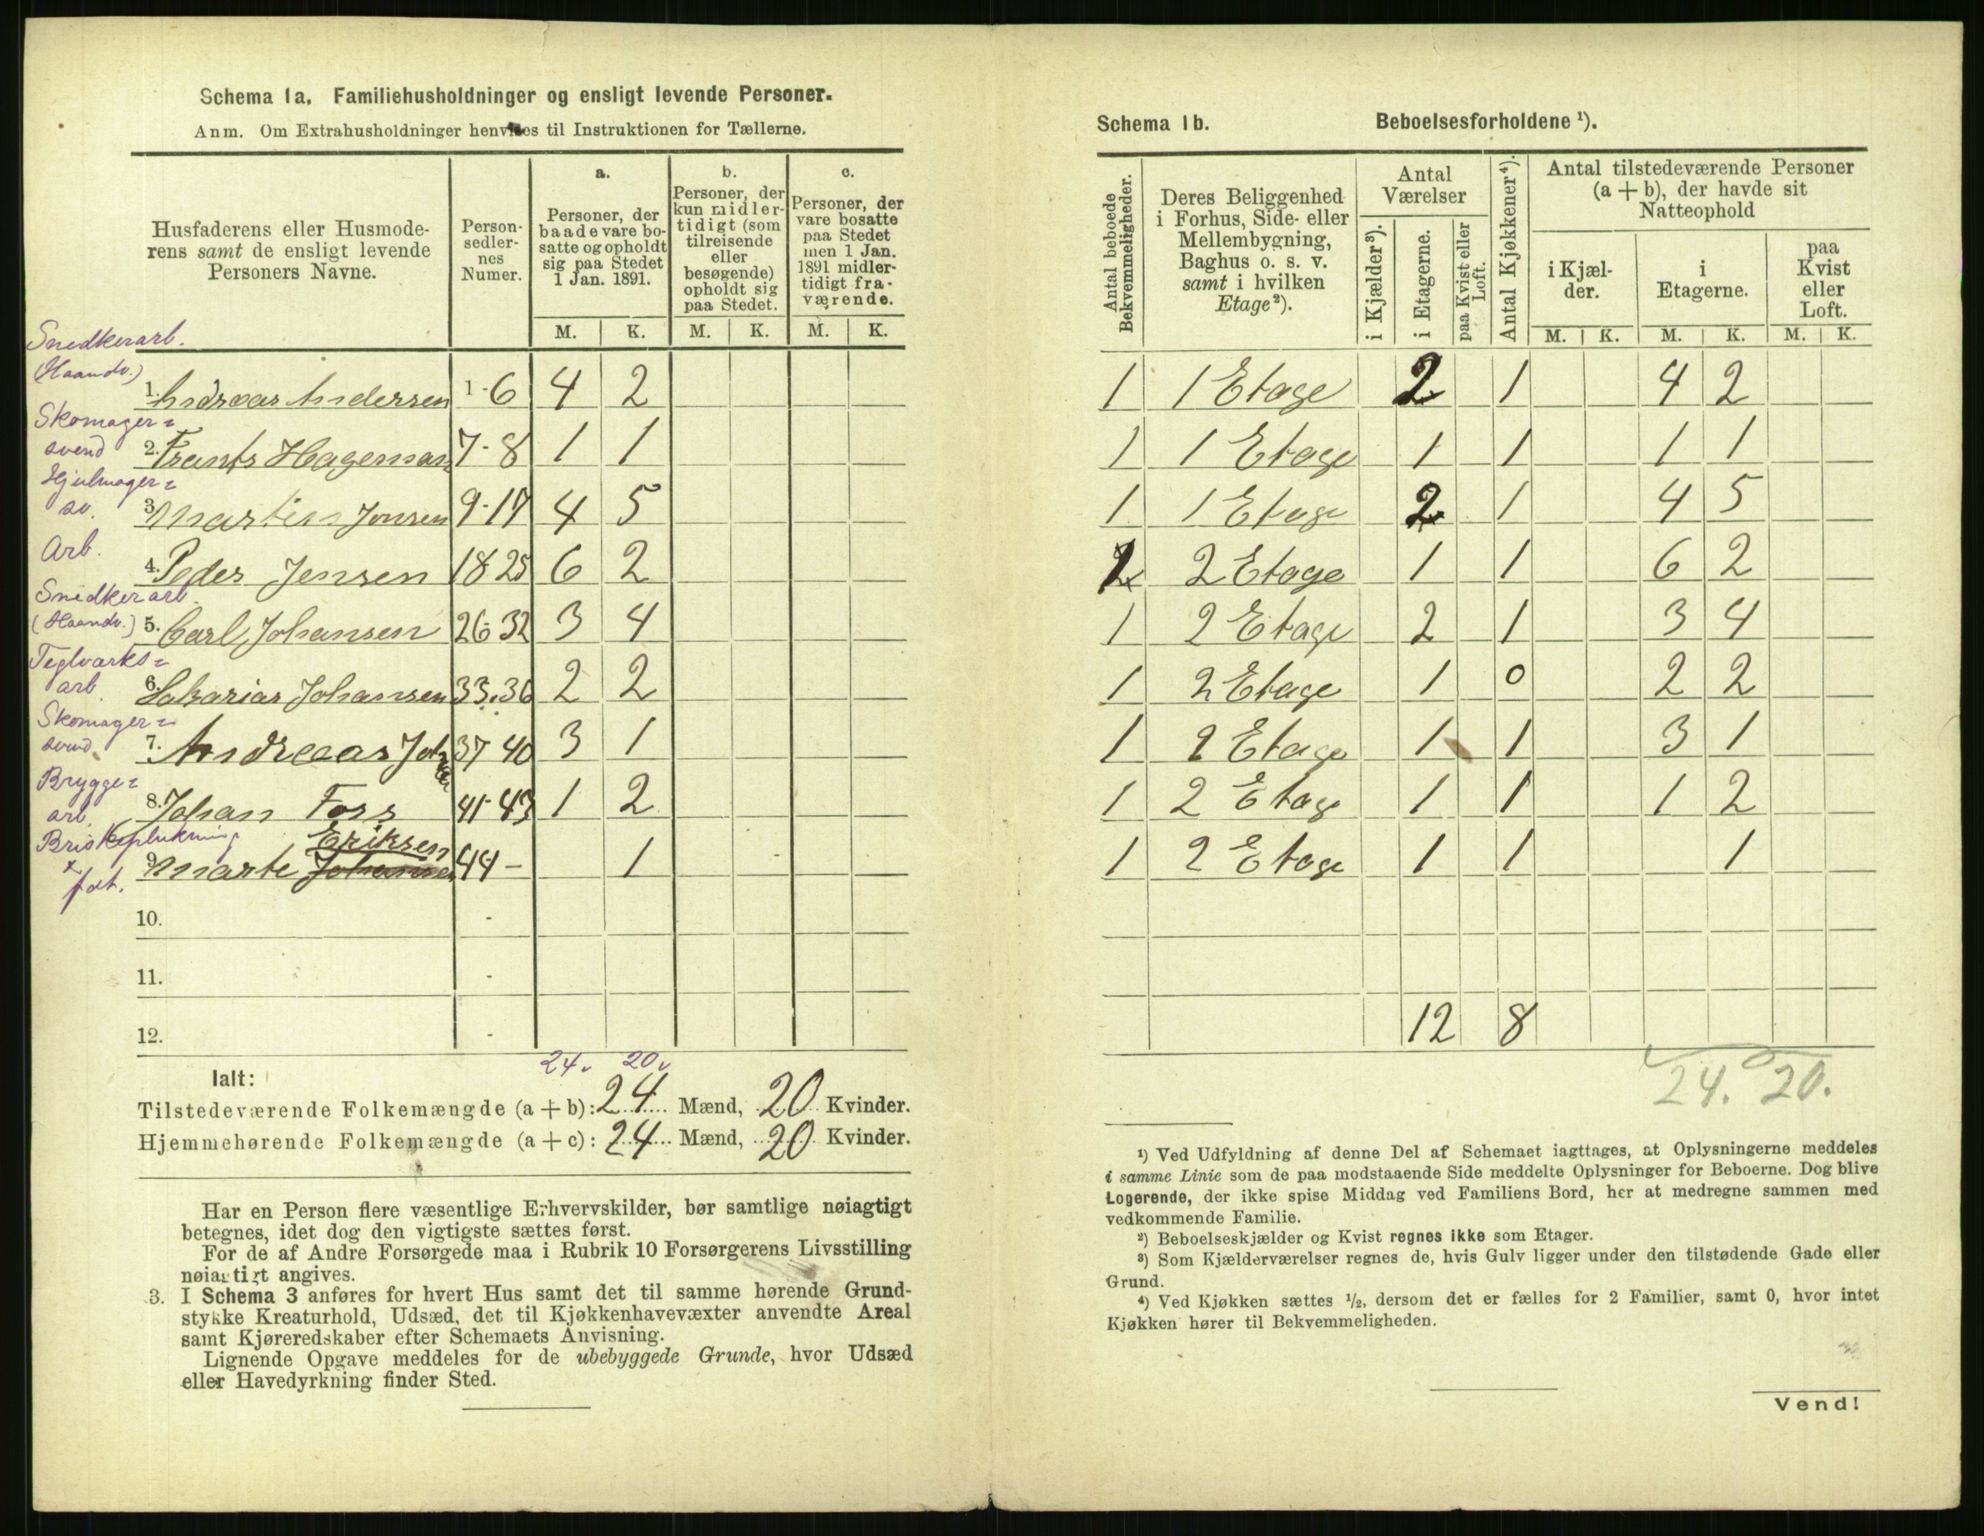 Schema 1a. Familiehusholdninger og ensligt levende Personer.
Anm. Om Extrahusholdninger henvises til Instruktionen for Tællerne.
Husfaderens eller Husmoderens samt de ensligt levende Personers Navne.
Person-sedler-nes Numer.
a. Personer, der baade vare bosatte og opholdt sig paa Stedet 1 Jan. 1891.
b. Personer, der kun midlertidigt (som tilreisende eller besøgende) opholdt sig paa Stedet.
c. Personer, der vare bosatte paa Stedet men 1 Jan. 1891 midlertidigt fraværende.
M. K. M. K. M. K.
Snedkerarb.
(Haandv.)
1. Andreas Andersen 1-6 4 2
Skomager=
svend
2. Frants Hageman 7-8 1 1
Hjulmager=
sv.
3. Martin Jonsen 9-17 4 5
Arb.
4. Peder Jensen 18 25 6 2
Snedkerarb.
(Haandv.)
5. Carl Johansen 26-32 3 4
Teglværks=
arb.
6. Sakarias Johansen 33.36 2 2
Skomager=
svend
7. Andreas Joh 37 40 3 1
Brygge=
arb.
8. Johan Foss 41-43 1 2
Eriksen
9. Marte Johansen 44- 1
10. -
11. -
12. -
24. 20.
Ialt:
Tilstedeværende Folkemængde (a + b): 24 Mænd, 20 Kvinder.
Hjemmehørende Folkemængde (a + c): 24 Mænd, 20 Kvinder.
Har en Person flere væsentlige Erhvervskilder, bør samtlige nøiagtigt
betegnes, idet dog den vigtigste sættes først.
For de af Andre Forsørgede maa i Rubrik 10 Forsørgerens Livsstilling
nøiagtigt angives.
3. I Schema 3 anføres for hvert Hus samt det til samme hørende Grund-
stykke Kreaturhold, Udsæd, det til Kjøkkenhavevæxter anvendte Areal
samt Kjøreredskaber efter Schemaets Anvisning.
Lignende Opgave meddeles for de ubebyggede Grunde, hvor Udsæd
eller Havedyrkning finder Sted.
Schema 1b. Beboelsesforholdene ¹).
Antal beboede Bekvemmeligheder.
Deres Beliggenhed i Forhus, Side- eller Mellembygning, Baghus o. s. v. samt i hvilken Etage²).
Antal Værelser
i Kjælder³).
i Etagerne.
paa Kvist eller Loft.
Antal Kjøkkener⁴).
Antal tilstedeværende Personer (a + b), der havde sit Natteophold
i Kjælder.
i Etagerne.
paa Kvist eller Loft.
M. K. M. K. M. K.
1 1 Etage 2 1 4 2
1 1 Etage 1 1 1 1
1 1 Etage 2 1 4 5
1 2 Etage 1 1 6 2
1 2 Etage 2 1 3 4
1 2 Etage 1 0 2 2
1 2 Etage 1 1 3 1
1 2 Etage 1 1 1 2
1 2 Etage 1 1 1
12 8
24. 20.
¹) Ved Udfyldning af denne Del af Schemaet iagttages, at Oplysningerne meddeles
i samme Linie som de paa modstaaende Side meddelte Oplysninger for Beboerne. Dog blive
Logerende, der ikke spise Middag ved Familiens Bord, her at medregne sammen med
vedkommende Familie.
²) Beboelseskjælder og Kvist regnes ikke som Etager.
³) Som Kjælderværelser regnes de, hvis Gulv ligger under den tilstødende Gade eller
Grund.
⁴) Ved Kjøkken sættes ¹/₂, dersom det er fælles for 2 Familier, samt 0, hvor intet
Kjøkken hører til Bekvemmeligheden.
Vend!